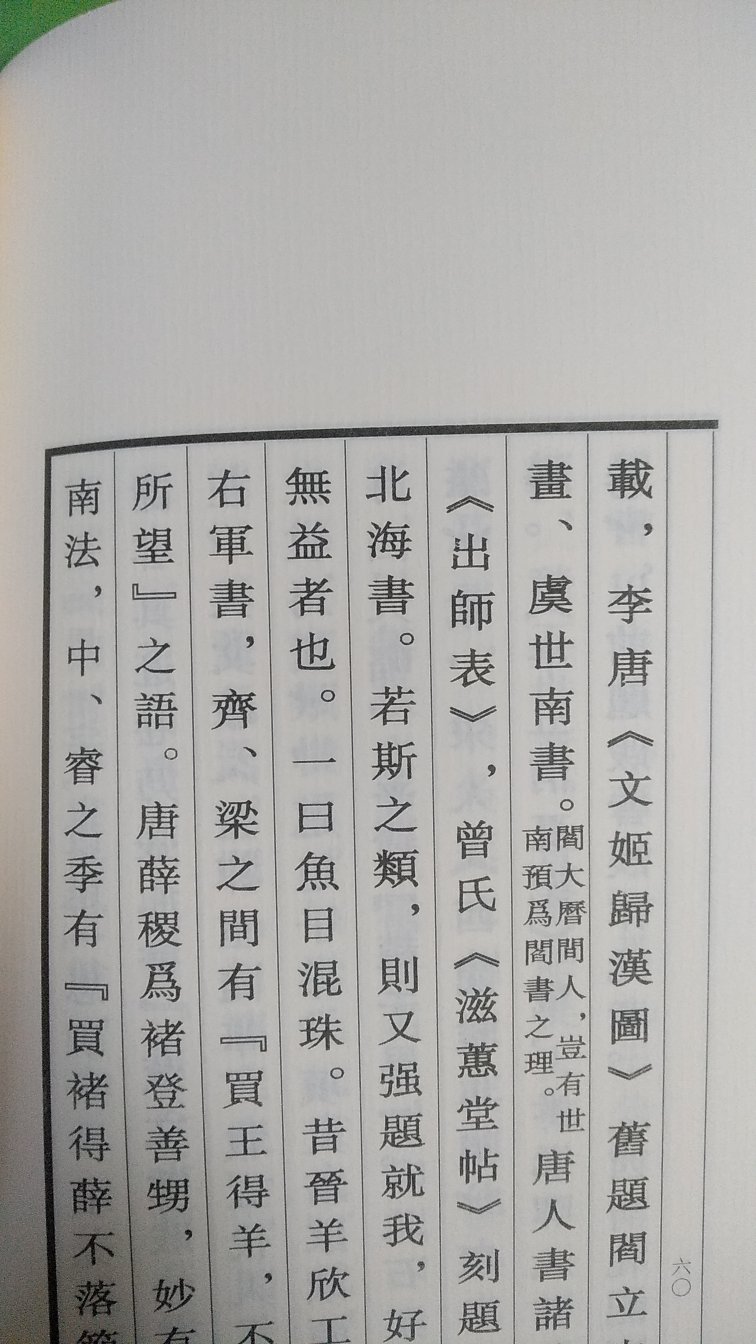 載，李唐《文姬歸漢圖》舊題閻立
畫、虞世南書。閻大曆間人，豈有世南預爲閻書之理。唐人書諸
《出師表》，曾氏《滋蕙堂帖》刻題
北海書。若斯之類，則又强題就我，好
無益者也。一曰魚目混珠。昔晉羊欣工
右軍書，齊、梁之間有『買王得羊，不
所望』之語。唐薛稷爲褚登善甥，妙有
南法，中、睿之季有『買褚得薛不落
六〇